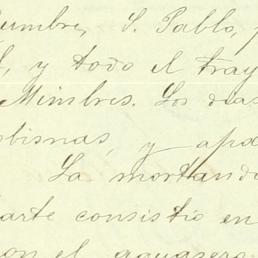 umbre, S. Pablo,
l, y todo el tray
Mimbres. Los dias
obisnas, y apo
La mortand
arte consistió en
on el aguasero